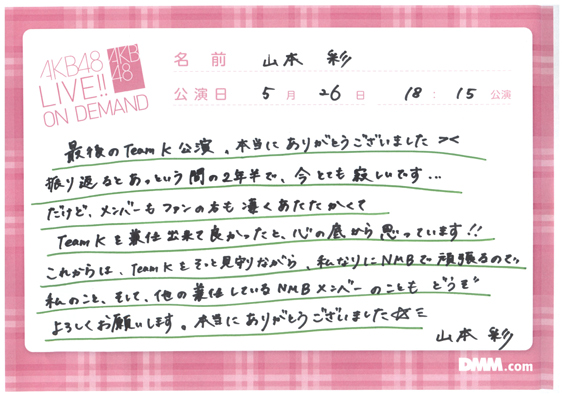 AKB48
LIVE!!
ON DEMAND
AKB
48
名前 山本 彩
公演日 5月 26日 18:15公演
最後のTeam K公演、本当にありがとうございました><
振り返るとあっという間の2年半で、今とても寂しいです...
だけど、メンバーもファンの方も凄くあたたかくて
Team Kを兼任出来て良かったと、心の底から思っています!!
これからは、Team Kをそっと見守りながら、私なりにNMBで頑張るので
私のこと、そして、他の兼任しているNMBメンバーのことも どうぞ
よろしくお願いします。本当にありがとうございました
山本 彩
DMM.com